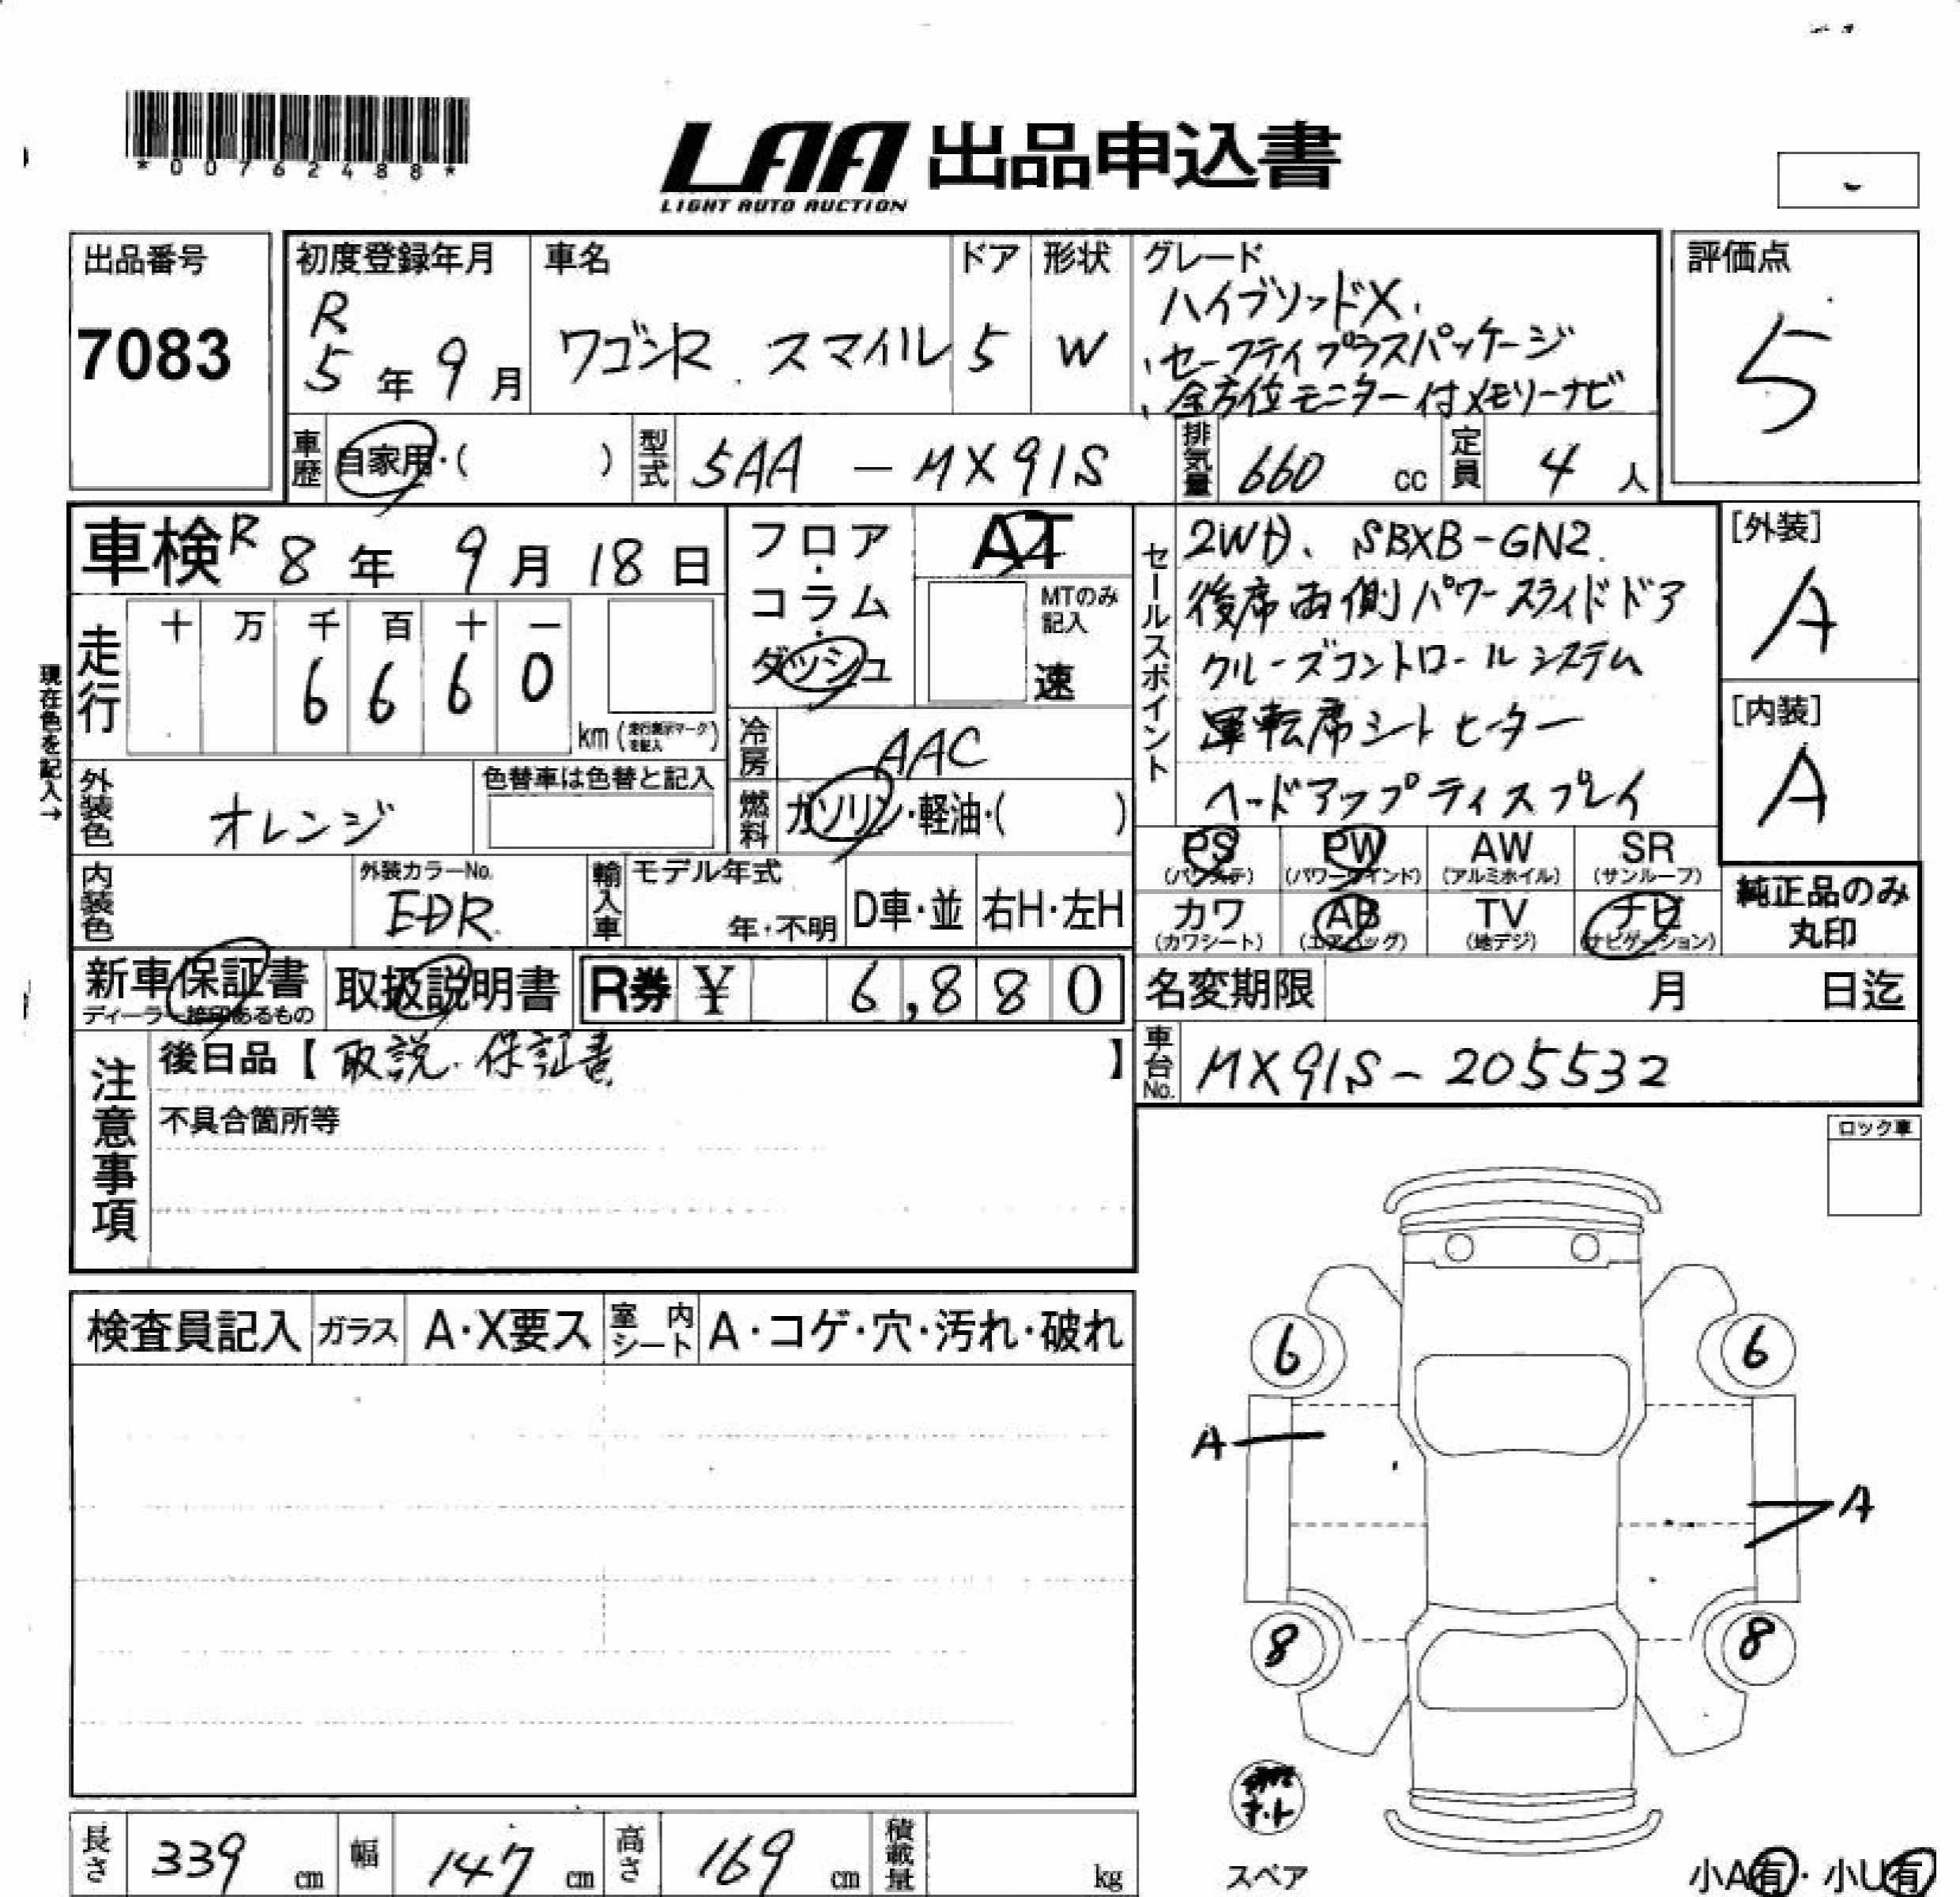 *00762488*
LAA 出品申込書
LIGHT AUTO AUCTION
出品番号
7083
初度登録年月
R
5年9月
車名
ワゴンR スマイル
ドア
5
形状
W
グレード
ハイブリッドX
セーフティプラスパッケージ
全方位モニター付メモリーナビ
評価点
5
車歴
自家用・( )
型式
5AA - MX91S
排気量
660 cc
定員
4人
車検 R8年9月18日
フロア・コラム・ダッシュ
AT
MTのみ記入
速
セールスポイント
2WD、SBXB-GN2
後席両側パワースライドドア
クルーズコントロールシステム
運転席シートヒーター
ヘッドアップディスプレイ
[外装]
A
[内装]
A
現在色を記入→
走行
十 万 千 百 十 一
6 6 6 0
km (走行表示マークを記入)
冷房
AAC
外装色
オレンジ
色替車は色替と記入
燃料
ガソリン・軽油・( )
PS (パワステ) PW (パワーウインド) AW (アルミホイル) SR (サンルーフ)
カワ (カワシート) AB (エアバッグ) TV (地デジ) ナビ (ナビゲーション)
純正品のみ丸印
内装色
外装カラーNo.
EDR
輸入車
モデル年式
年・不明
D車・並
右H・左H
新車保証書
ディーラー捺印あるもの
取扱説明書
R券 ¥ 6,880
名変期限 月 日迄
注意事項
後日品【取説・保証書】
不具合箇所等
車台No.
MX91S-205532
ロック車
検査員記入 ガラス A・X要ス 室内シート A・コゲ・穴・汚れ・破れ
6 6
A
A
8 8
スペア
小A有・小U有
長さ 339 cm 幅 147 cm 高さ 169 cm 積載量 kg